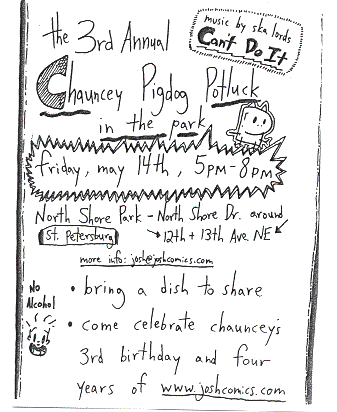 the 3rd Annual
music by ska lords
Can't Do It
Chauncey Pigdog Potluck
in the park
Friday, may 14th, 5PM-8PM
North Shore Park - North Shore Dr. around
St. Petersburg
12th + 13th Ave NE
more info: josh@joshcomics.com
No
Alcohol
• bring a dish to share
• come celebrate chaunceys
3rd birthday and four
years of www.joshcomics.com